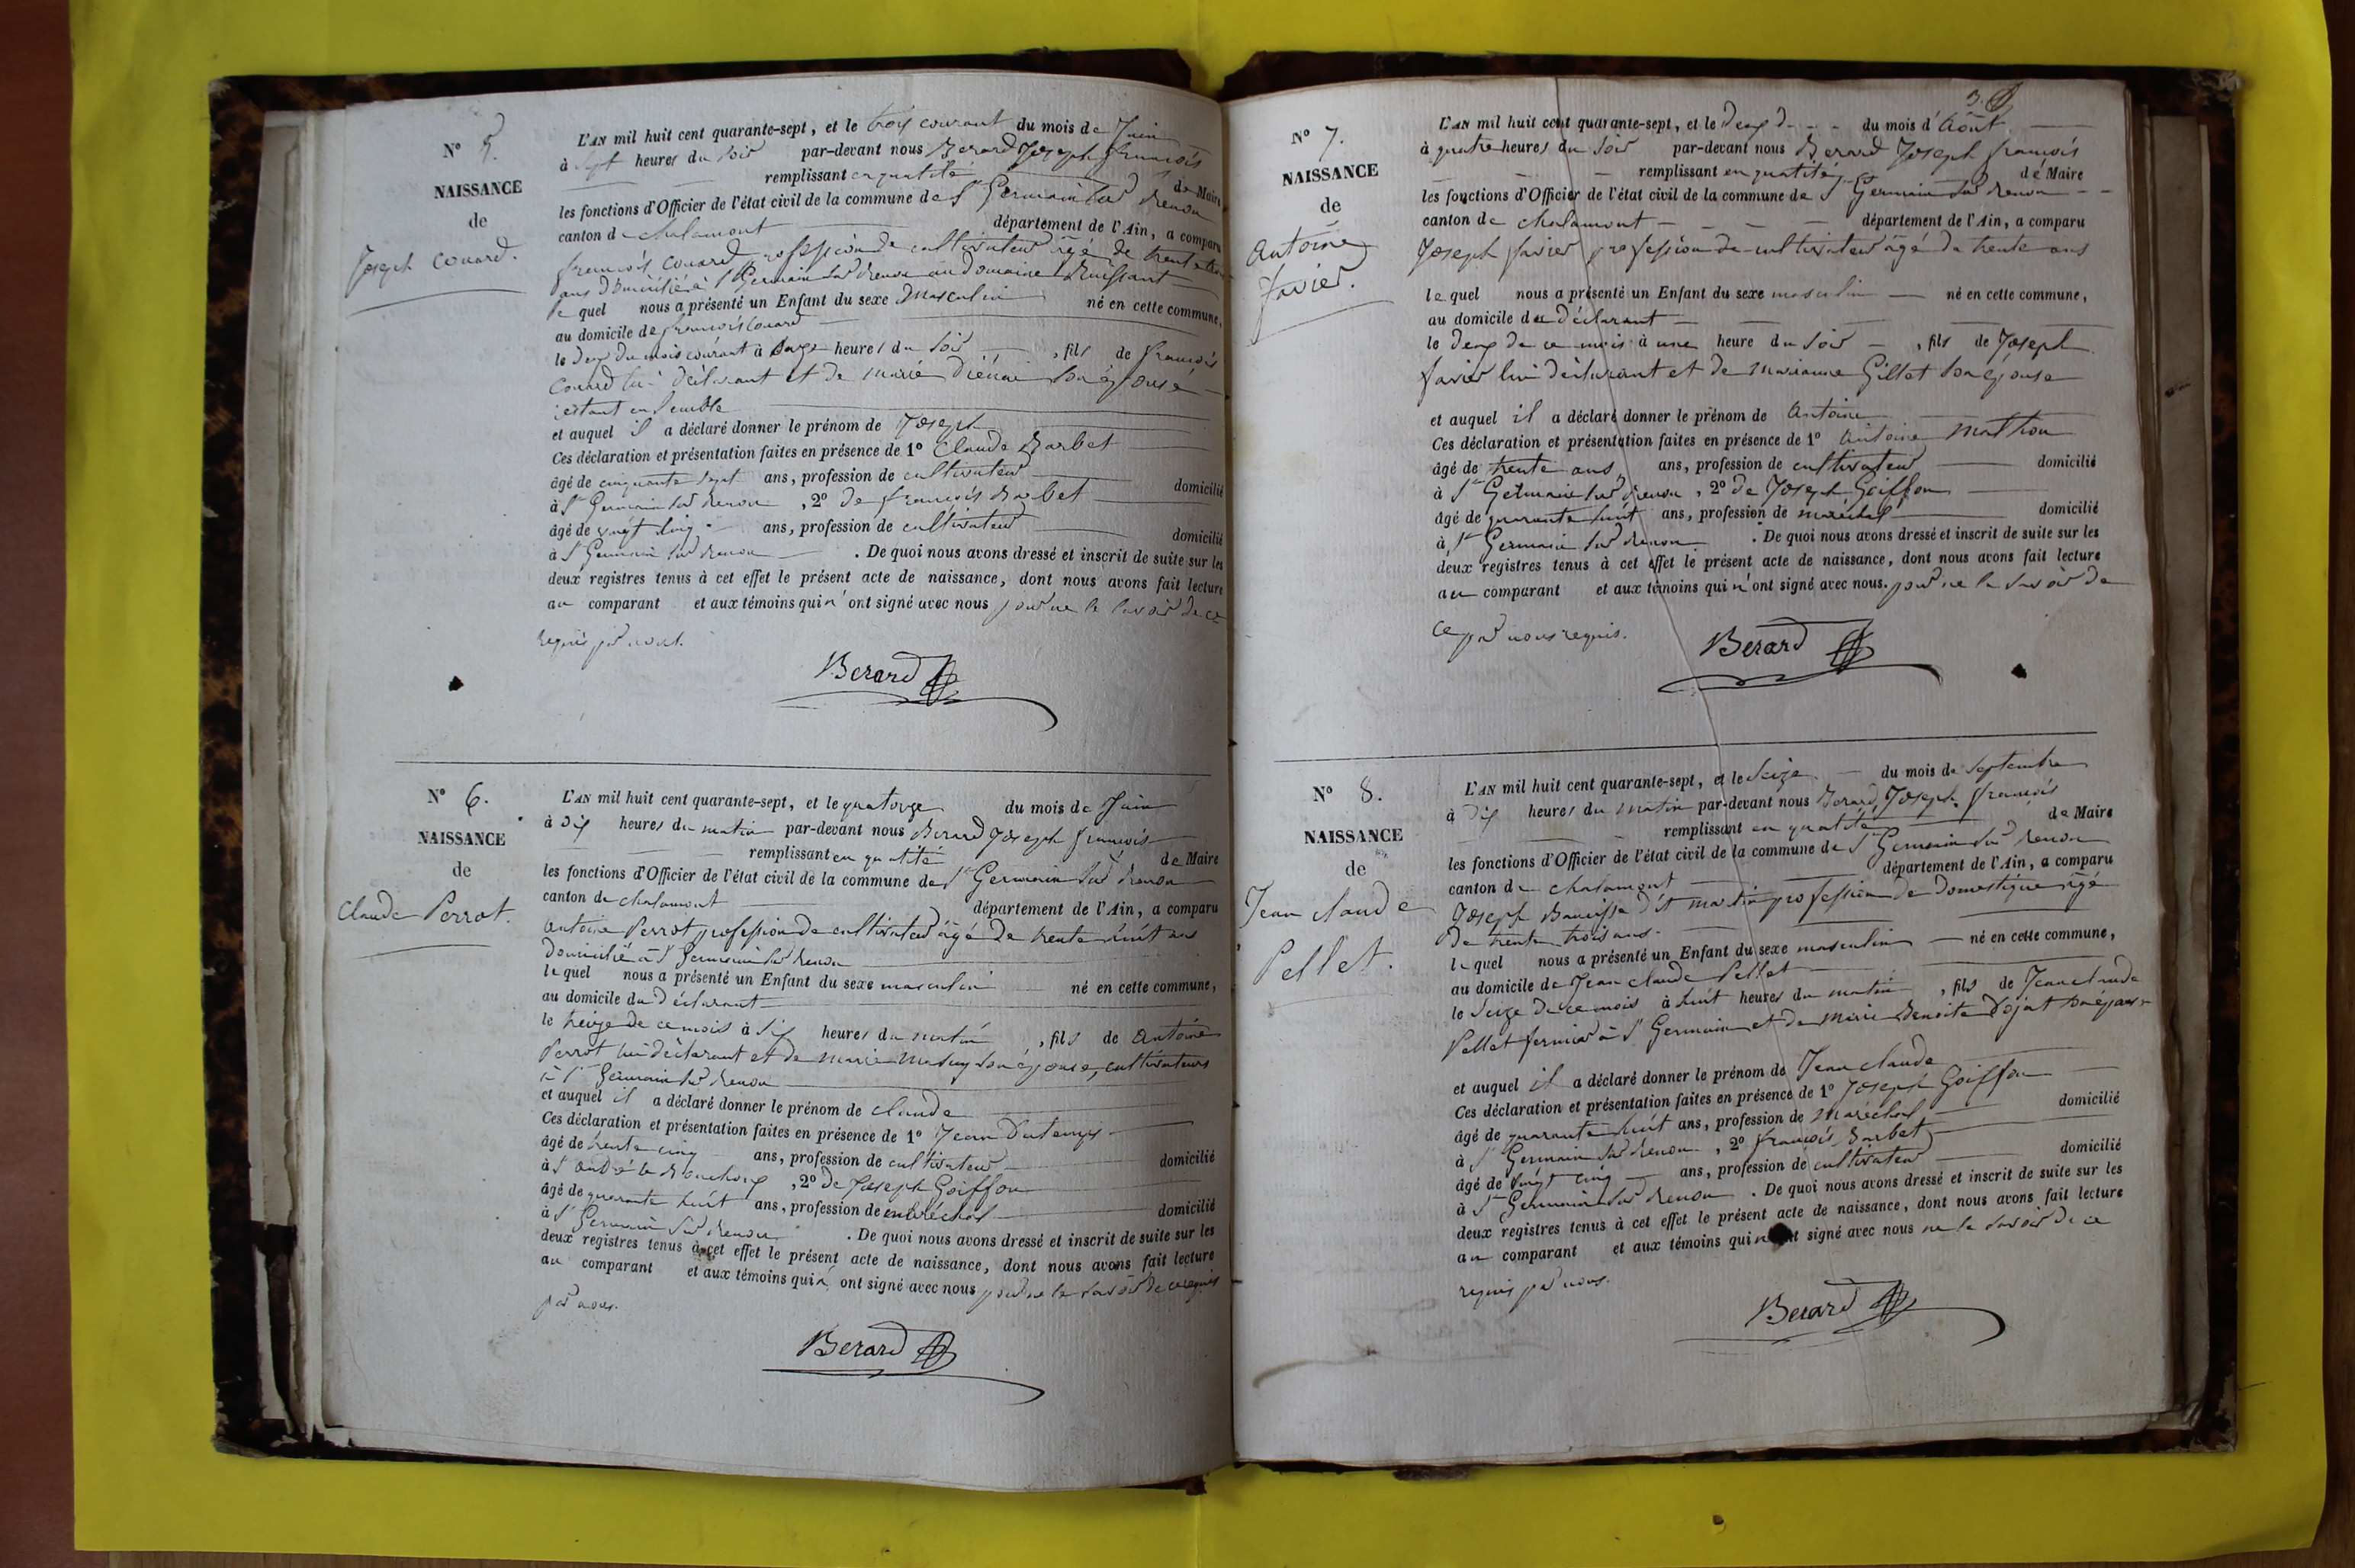 N° 5.
NAISSANCE
de
Joseph Couard.
L'AN mil huit cent quarante-sept, et le trois courant du mois de Juin
à sept heures du soir par-devant nous Berard Joseph françois
remplissant en qualité de Maire
les fonctions d'Officier de l'état civil de la commune de St Germain sur Renon
canton de chalamont département de l'Ain, a comparu
françois Couard profession de cultivateur âgé de trente
ans domicilié à St Germain sur Renon au domaine
le quel nous a présenté un Enfant du sexe Masculin né en cette commune,
au domicile de françois Couard
le deux du mois courant à onze heures du soir , fils de françois
Couard lui déclarant et de marie son épouse
restant ensemble
et auquel il a déclaré donner le prénom de Joseph
Ces déclaration et présentation faites en présence de 1° Claude Barbet
âgé de cinquante sept ans, profession de cultivateur domicilié
à St Germain sur Renon , 2° de françois Barbet
âgé de vingt cinq ans, profession de cultivateur domicilié
à St Germain sur Renon . De quoi nous avons dressé et inscrit de suite sur les
deux registres tenus à cet effet le présent acte de naissance, dont nous avons fait lecture
au comparant et aux témoins qui n'ont signé avec nous pour ne le savoir de ce
requis par nous.
Berard
N° 6.
NAISSANCE
de
Claude Perrot.
L'AN mil huit cent quarante-sept, et le quatorze du mois de Juin
à dix heures du matin par-devant nous Berard Joseph françois
remplissant en qualité de Maire
les fonctions d'Officier de l'état civil de la commune de St Germain sur Renon
canton de chalamont département de l'Ain, a comparu
antoine Perrot profession de cultivateur âgé de trente huit ans
domicilié à St Germain sur Renon
le quel nous a présenté un Enfant du sexe masculin né en cette commune,
au domicile du déclarant
le treize de ce mois à six heures du matin , fils de antoine
Perrot lui déclarant et de marie son épouse, cultivateurs
à St Germain sur Renon
et auquel il a déclaré donner le prénom de claude
Ces déclaration et présentation faites en présence de 1° Jean Dutemps
âgé de trente cinq ans, profession de cultivateur domicilié
à St andré le Bouchoux , 2° de Joseph Goiffon
âgé de quarante huit ans, profession de maréchal domicilié
à St Germain sur Renon . De quoi nous avons dressé et inscrit de suite sur les
deux registres tenus à cet effet le présent acte de naissance, dont nous avons fait lecture
au comparant et aux témoins qui n'ont signé avec nous pour ne le savoir de ce requis
par nous.
Berard
3.
N° 7.
NAISSANCE
de
Antoine
favier.
L'AN mil huit cent quarante-sept, et le deux du mois d'Août
à quatre heures du soir par-devant nous Berard Joseph françois
remplissant en qualité de Maire
les fonctions d'Officier de l'état civil de la commune de St Germain sur Renon
canton de chalamont département de l'Ain, a comparu
Joseph favier profession de cultivateur âgé de trente ans
le quel nous a présenté un Enfant du sexe masculin né en cette commune,
au domicile du déclarant
le deux de ce mois à une heure du soir , fils de Joseph
favier lui déclarant et de marianne Gillet son épouse
et auquel il a déclaré donner le prénom de antoine
Ces déclaration et présentation faites en présence de 1° antoine Mathon
âgé de trente ans ans, profession de cultivateur domicilié
à St Germain sur Renon , 2° de Joseph Goiffon
âgé de quarante huit ans, profession de maréchal domicilié
à St Germain sur Renon . De quoi nous avons dressé et inscrit de suite sur les
deux registres tenus à cet effet le présent acte de naissance, dont nous avons fait lecture
au comparant et aux témoins qui n'ont signé avec nous. pour ne le savoir de
ce par nous requis.
Berard
N° 8.
NAISSANCE
de
Jean claude
Pellet.
L'AN mil huit cent quarante-sept, et le seize du mois de Septembre
à dix heures du matin par-devant nous Berard Joseph françois
remplissant en qualité de Maire
les fonctions d'Officier de l'état civil de la commune de St Germain sur Renon
canton de chalamont département de l'Ain, a comparu
Joseph dit martin profession de domestique âgé
de trente trois ans.
le quel nous a présenté un Enfant du sexe masculin né en cette commune,
au domicile de Jean claude Pellet
le seize de ce mois à huit heures du matin , fils de Jean claude
Pellet fermier à St Germain et de Marie son épouse
et auquel il a déclaré donner le prénom de Jean claude
Ces déclaration et présentation faites en présence de 1° Joseph Goiffon
âgé de quarante huit ans, profession de Maréchal domicilié
à St Germain sur Renon , 2° françois Barbet
âgé de vingt cinq ans, profession de cultivateur domicilié
à St Germain sur Renon . De quoi nous avons dressé et inscrit de suite sur les
deux registres tenus à cet effet le présent acte de naissance, dont nous avons fait lecture
au comparant et aux témoins qui n'ont signé avec nous ne le savoir de ce
requis par nous.
Berard